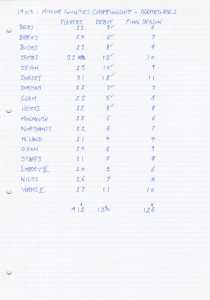 1903 - MINOR COUNTIES CHAMPIONSHIP - APPEARANCES
PLAYERS DEBUT FINAL SEASON
BEDS 22
BERKS 24 6 7
BUCKS 23 8 9
CAMBS 32 13 10
DEVON 25 10 9
DORSET 31 18 11
DURHAM 23 7 7
GLAM 22 5
HERTS 22 8 8
MONMOUTH 23 6
NORTHANTS 22 6 7
N'LAND 21 4 4
OXON 29 6 9
STAFFS 21 5 8
SURREY II 20 5 6
WILTS 26 7 5
YORKS II 27 11 10
412 130 126